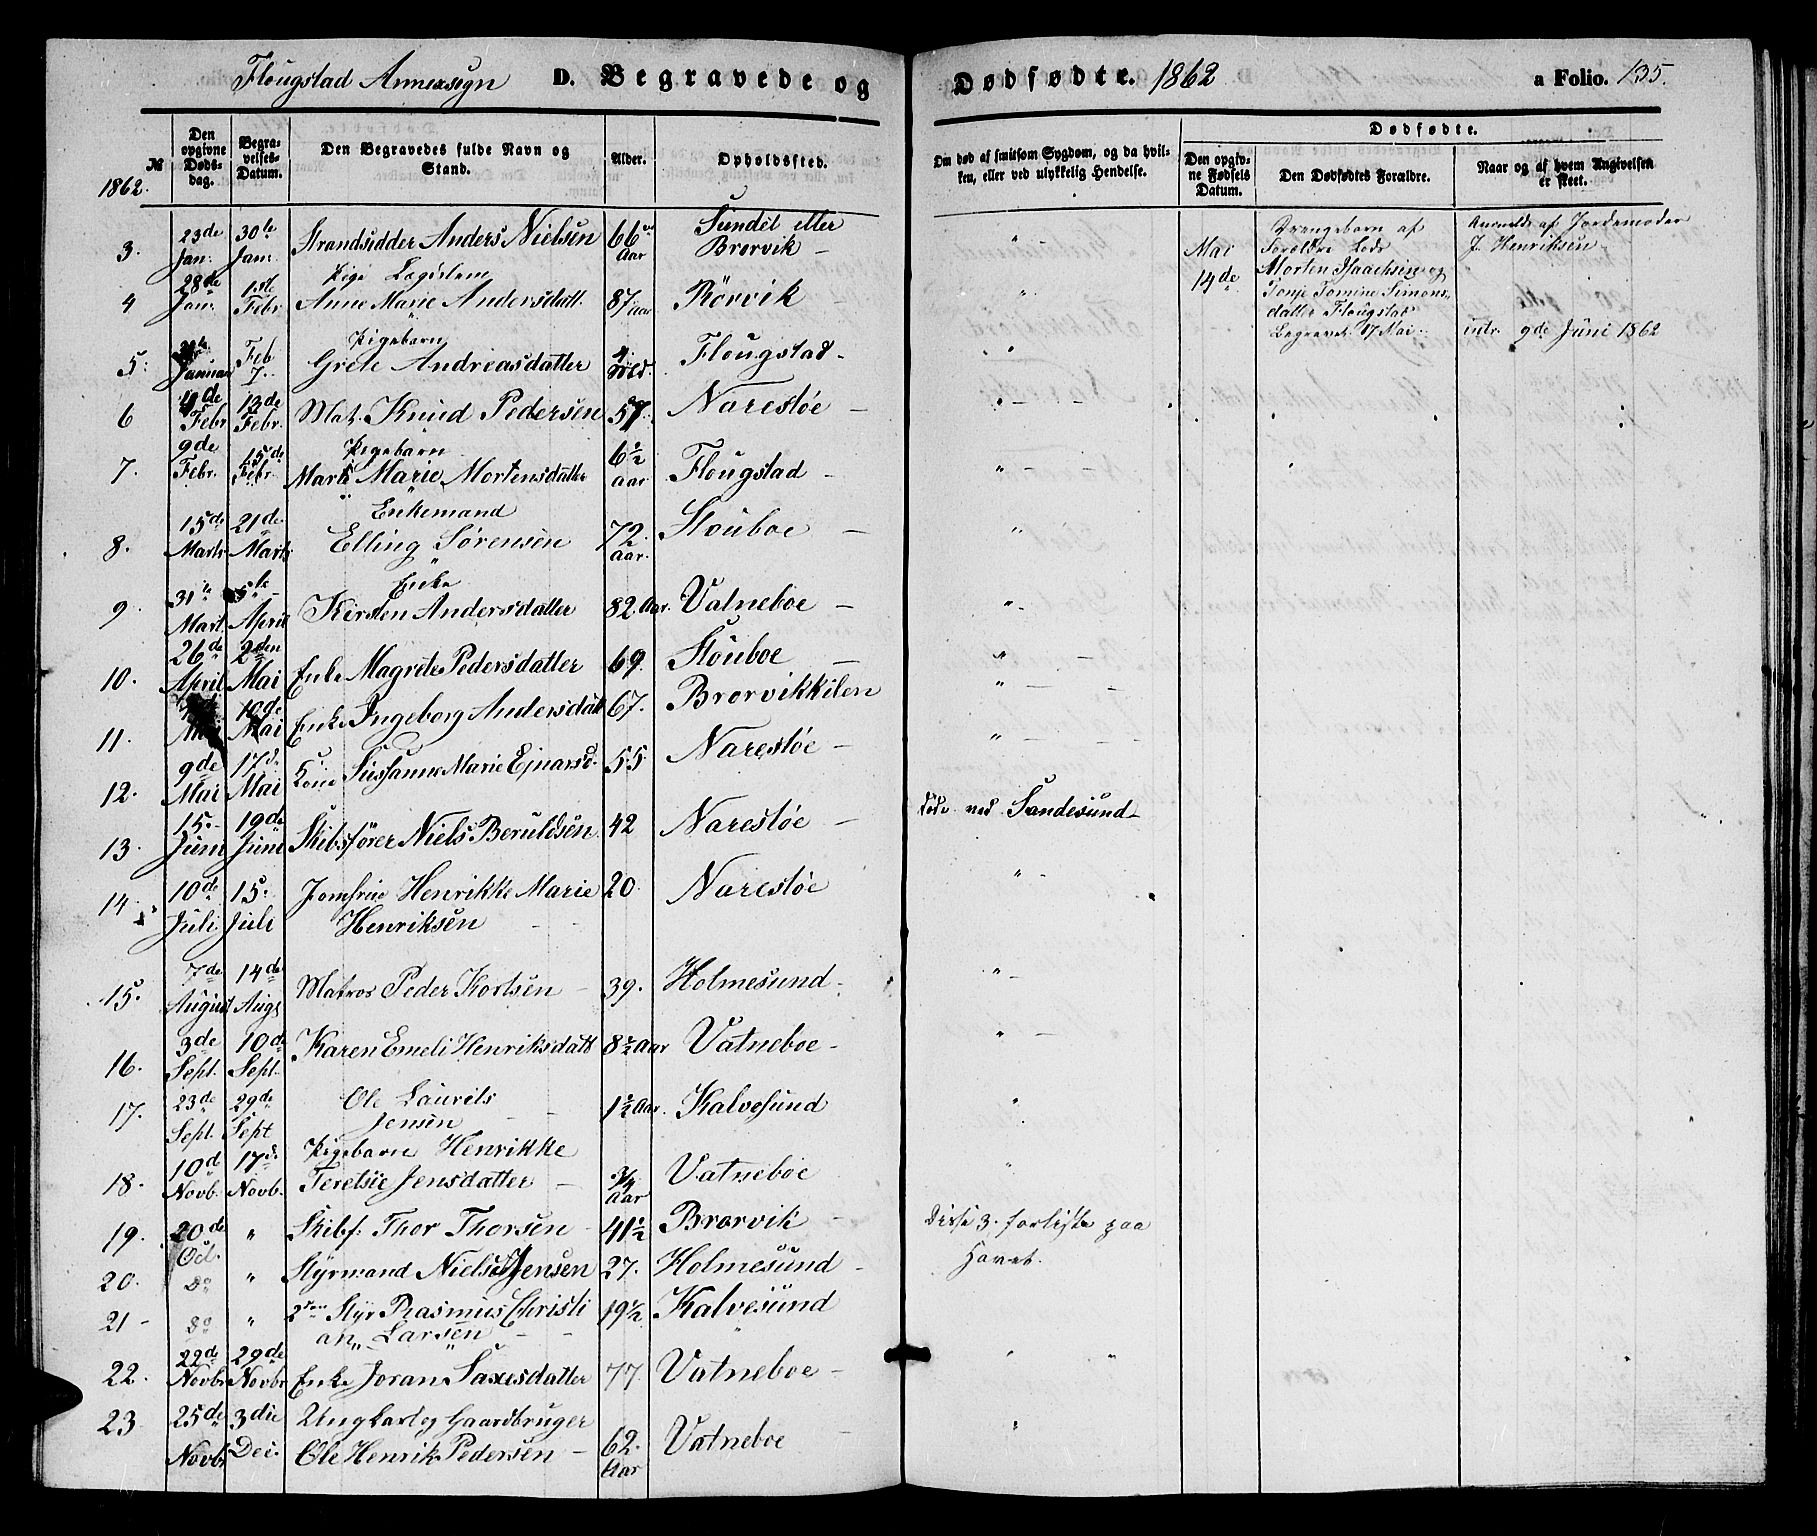 Flougstad Annexsogn D. Begravede og Dødfødte. 1862 a Folio. 135.
№ 1862.
Den opgivne Dødsdag.
Begravelses-Datum.
Den Begravedes fulde Navn og Stand.
Alder.
Opholdssted.
Om død af smitsom Sygdom, og da hvilken, eller ved ulykkelig Hendelse.
Dødfødte.
Den opgivne Fødsels Datum.
Den Dødfødtes Forældre.
Naar og af hvem Angivelsen er skeet.
3. 23de Jan: 30te Jan: Strandsidder Anders Nielsen 66 Aar Sundet eller Brorvik –
4 28de Jan: 1ste Febr Pige Logislem Anne Marie Andersdatt. 87 Aar Rörvik –
5: Januar Feb 7. Pigebarn Grete Andreasdatter 4 Flougstad –
6 4de Febr 13de Febr. Mat. Knud Pedersen 57. Narestøe –
7. 9de Febr. 15de Febr. Pigebarn Marie Mortensdatter 6½ aar Flougstad –
8. 15de Marts 21de Marts Enkemand Elling Sørensen 72 Aar. Stouboe –
9 31te Mart. 5te April Enke Kirsten Andersdatter 82 Aar. Vatneboe –
10. 26de April 2den Mai Enke Magrete Pedersdatter 69. Stouboe –
11. Mai 10de Mai Enke Ingeborg Andersdatt 67. Brorvikkilen
12. 9de Mai 17de Mai Kone Sussanne Marie Ejnarsd. 55 Narestøe –
13. 15. Juni 19de Juni Skibsfører Niels Beruldsen 42 Narestøe – døde ved Sandesund
14. 10de Juli 15. Juli Jomfrue Henrikke Marie Henriksen 20. Narestøe
15. 7de August 14de Aug. Matros Peder Kortsen 39. Holmesund –
16. 3de Sept. 10de Sept. Karen Emeli Henriksdatt 8½ Aar Vatneboe –
17. 23de Sept. 29de Sept Ole Laurits Jensen 1½ Aar. Kalvesund
18. 10d Novb. 17d. Novb. Pigebarn Henrikke Teresie Jensdatter ¾ Aar Vatneboe
19. 20de Oct. " Skibf: Thor Thorsen 41½ Brorvik – Disse 3. forliste paa Havet.
20. do " Styrmand Niels Jensen 27. Holmesund –
21 – do " 2den Styr Rasmus Christian Larsen 19½ Kalvesund
22. 22de Novbr 29de Novbr Enke Joran Saxesdatter 77 Vatneboe –
23 25de Novbr 3die Dec. Ungkarl og Gaardbruger Ole Henrik Pedersen – 62. Aar Vatneboe
Mai 14de
Drengebarn af Forældre Lods Morten Isaachsen og Tonje Tomine Simonsdatter Flougstad Begravet 17 Mai
Anmeldt af Jordemoder J. Henriksen
intr. 9de Juni 1862